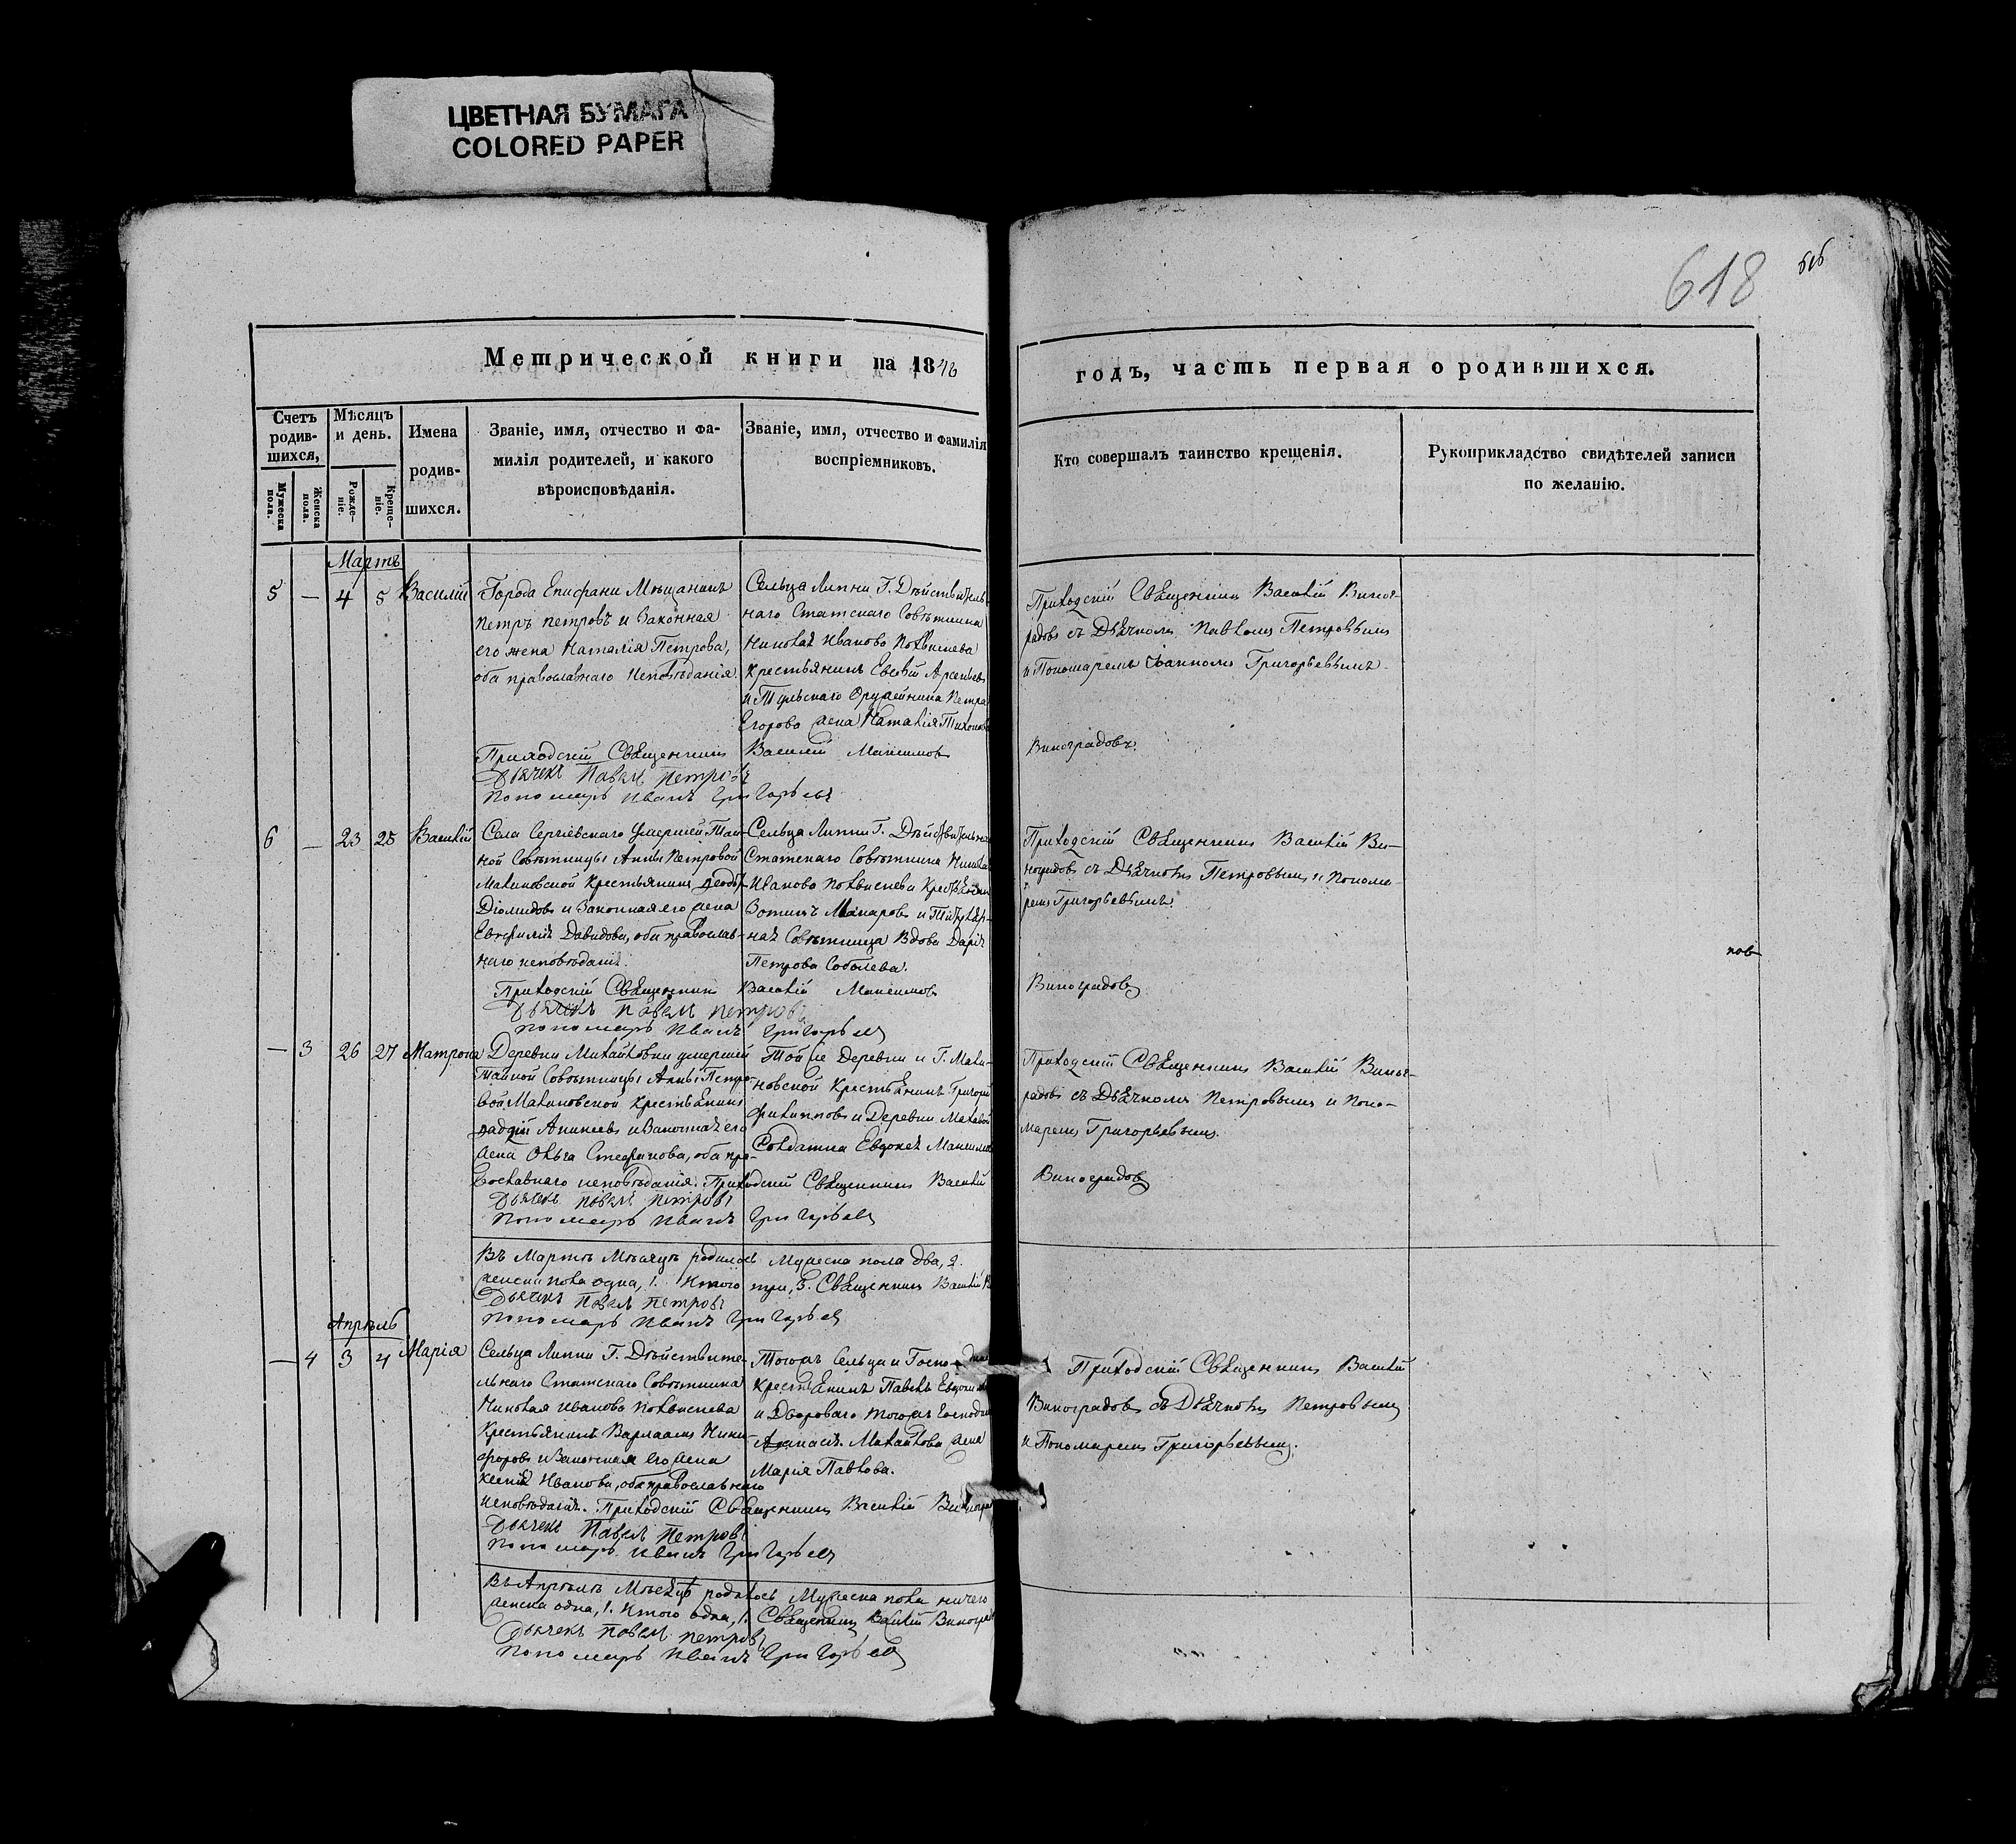 ЦВЕТНАЯ БУМАГА
COLORED PAPER
618
Метрической книги на 1846
Счетъ родив-шихся,
Мѣсяцъ и день.
Имена родив-шихся.
Званіе, имя, отчество и фа-
милія родителей, и какого
вѣроисповѣданія.
Званіе, имя, отчество и фамилія
воспріемниковъ.
Мужеска пола.
Женска пола.
Рожде-ніе.
Креще-ніе.
Мартъ
5 — 4 5 Василій
Города Епифани Мѣщанинъ
Петръ Петровъ и Законная
его жена Наталія Петрова,
оба православнаго исповѣданія.
Сельца Липни Г. Дѣйствитель
наго Статскаго Совѣтника
Николая Иванова Похвиснева
Крестьянинъ Евсевій Арсеньевъ
и Тульскаго Оружейника Петра
Егорова жена Наталія Тихонова
Приходскій Священникъ Василій Максимовъ
Дьячекъ Павелъ Петровъ
Пономарь Иванъ Григорьевъ
6 — 23 25 Василій
Села Сергіевскаго умершей Тай-
ной Совѣтницы Анны Петровой
Крестьянинъ
Діомидовъ и Законная его жена
Евфимія Давидова, оба православ-
наго исповѣданія.
Сельца Липни Г. Дѣйствительна
Статскаго Совѣтника Никола
Иванова Похвиснева Крестьянинъ
Зотикъ Макаровъ и Титуляр-
ная Совѣтница Вдова Дарія
Петрова Соболева.
Приходскій Священникъ Василій Максимовъ
Дьячекъ Павелъ Петровъ
Пономарь Иванъ Григорьевъ
— 3 26 27 Матрона
Деревни Михайловки умершей
Тайной Совѣтницы Анны Петро-
вой Крестьянинъ
Ананьевъ и Законная его
жена Ольга Стефанова, оба пра-
вославнаго исповѣданія. Приходскій Священникъ Василій
Той же Деревни и Г.
новской Крестьянинъ Григорій
Филипповъ и Деревни Маховой
Солдатка Евдокія Максимо
Дьячекъ Павелъ Петровъ
Пономарь Иванъ Григорьевъ
Въ Мартѣ Мѣсяцѣ родилось Мужеска пола два, 2.
женска пола одна, 1. Итого три, 3. Священникъ Василій В
Дьячекъ Павелъ Петровъ
Пономарь Иванъ Григорьевъ
Апрѣль
— 4 3 4 Марія
Сельца Липни Г. Дѣйствите-
льнаго Статскаго Совѣтника
Николая Иванова Похвиснева
Крестьянинъ Варлаамъ Ники-
форовъ и Законная его жена
Ксенія Иванова, оба православнаго
исповѣданія. Приходскій Священникъ Василій Виногра
Тогожъ Сельца и Госпо
Крестьянинъ Павелъ Евдоким
и Двороваго тогожъ Господи
Афанасія Михайлова жена
Марія Павлова.
Дьячекъ Павелъ Петровъ
Пономарь Иванъ Григорьевъ
Въ Апрѣлѣ Мѣсяцѣ родилось Мужеска пола ничего
женска одна, 1. Итого одна, 1. Священникъ Василій Виногра
Дьячекъ Павелъ Петровъ
Пономарь Иванъ Григорьевъ
годъ, часть первая о родившихся.
Кто совершалъ таинство крещенія.
Рукоприкладство свидѣтелей записи
по желанію.
Приходскій Священникъ Василій Виног-
радовъ съ Дьячкомъ Павломъ Петровымъ
и Пономаремъ Іоанномъ Григорьевымъ.
Виноградовъ.
Приходскій Священникъ Василій Ви-
ноградовъ съ Дьячкомъ Петровымъ и Понома-
ремъ Григорьевымъ.
Виноградовъ
Приходскій Священникъ Василій Виног-
радовъ съ Дьячкомъ Петровымъ и Поно-
маремъ Григорьевымъ.
Виноградовъ
Приходскій Священникъ Василій
Виноградовъ съ Дьячкомъ Петровымъ
и Пономаремъ Григорьевымъ.
пов